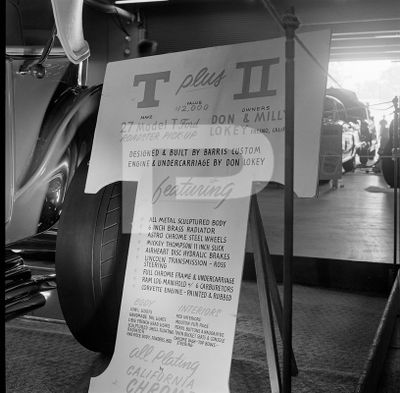 T plus II
VALUE
$12,000
MAKE
27 Model T Ford
ROADSTER PICKUP
OWNERS
DON & MILLY
LOKEY FRESNO, CALIF
DESIGNED & BUILT BY BARRIS CUSTOM
ENGINE & UNDERCARRIAGE BY DON LOKEY
featuring
ALL METAL SCULPTURED BODY
6 INCH BRASS RADIATOR
ASTRO CHROME STEEL WHEELS
MICKEY THOMPSON 11 INCH SLICK
AIRHEART DISC HYDRAULIC BRAKES
LINCOLN TRANSMISSION - ROSS
STEERING
FULL CHROME FRAME & UNDERCARRIAGE
RAM LOG-MANIFOLD w/ 6 CARBURETORS
CORVETTE ENGINE - PAINTED & RUBBED
BODY
INTERIORS
all Plating
CALIFORNIA
CHROME